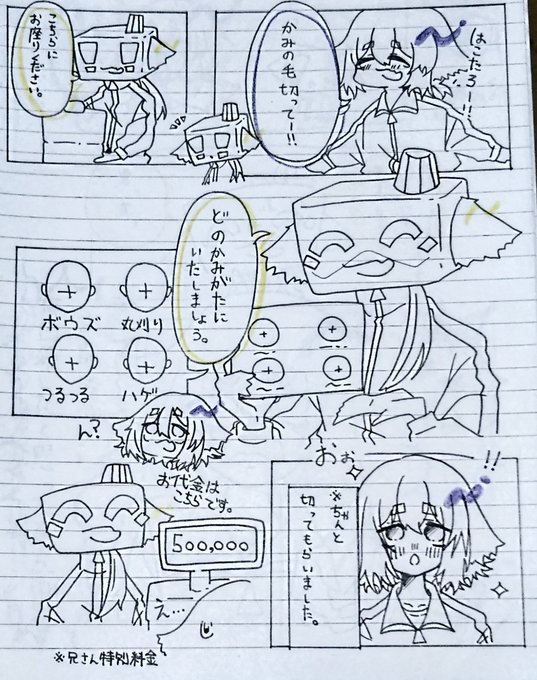 はこたろー!!
かみの毛切ってー!!
こちらに
お座りください。
どのかみがたに
いたしましょう。
ボウズ
丸刈り
つるつる
ハゲ
ん?
おぉ
!!
※ちゃんと
切ってもらいました。
お代金は
こちらです。
500,000
え…
※兄さん特別料金